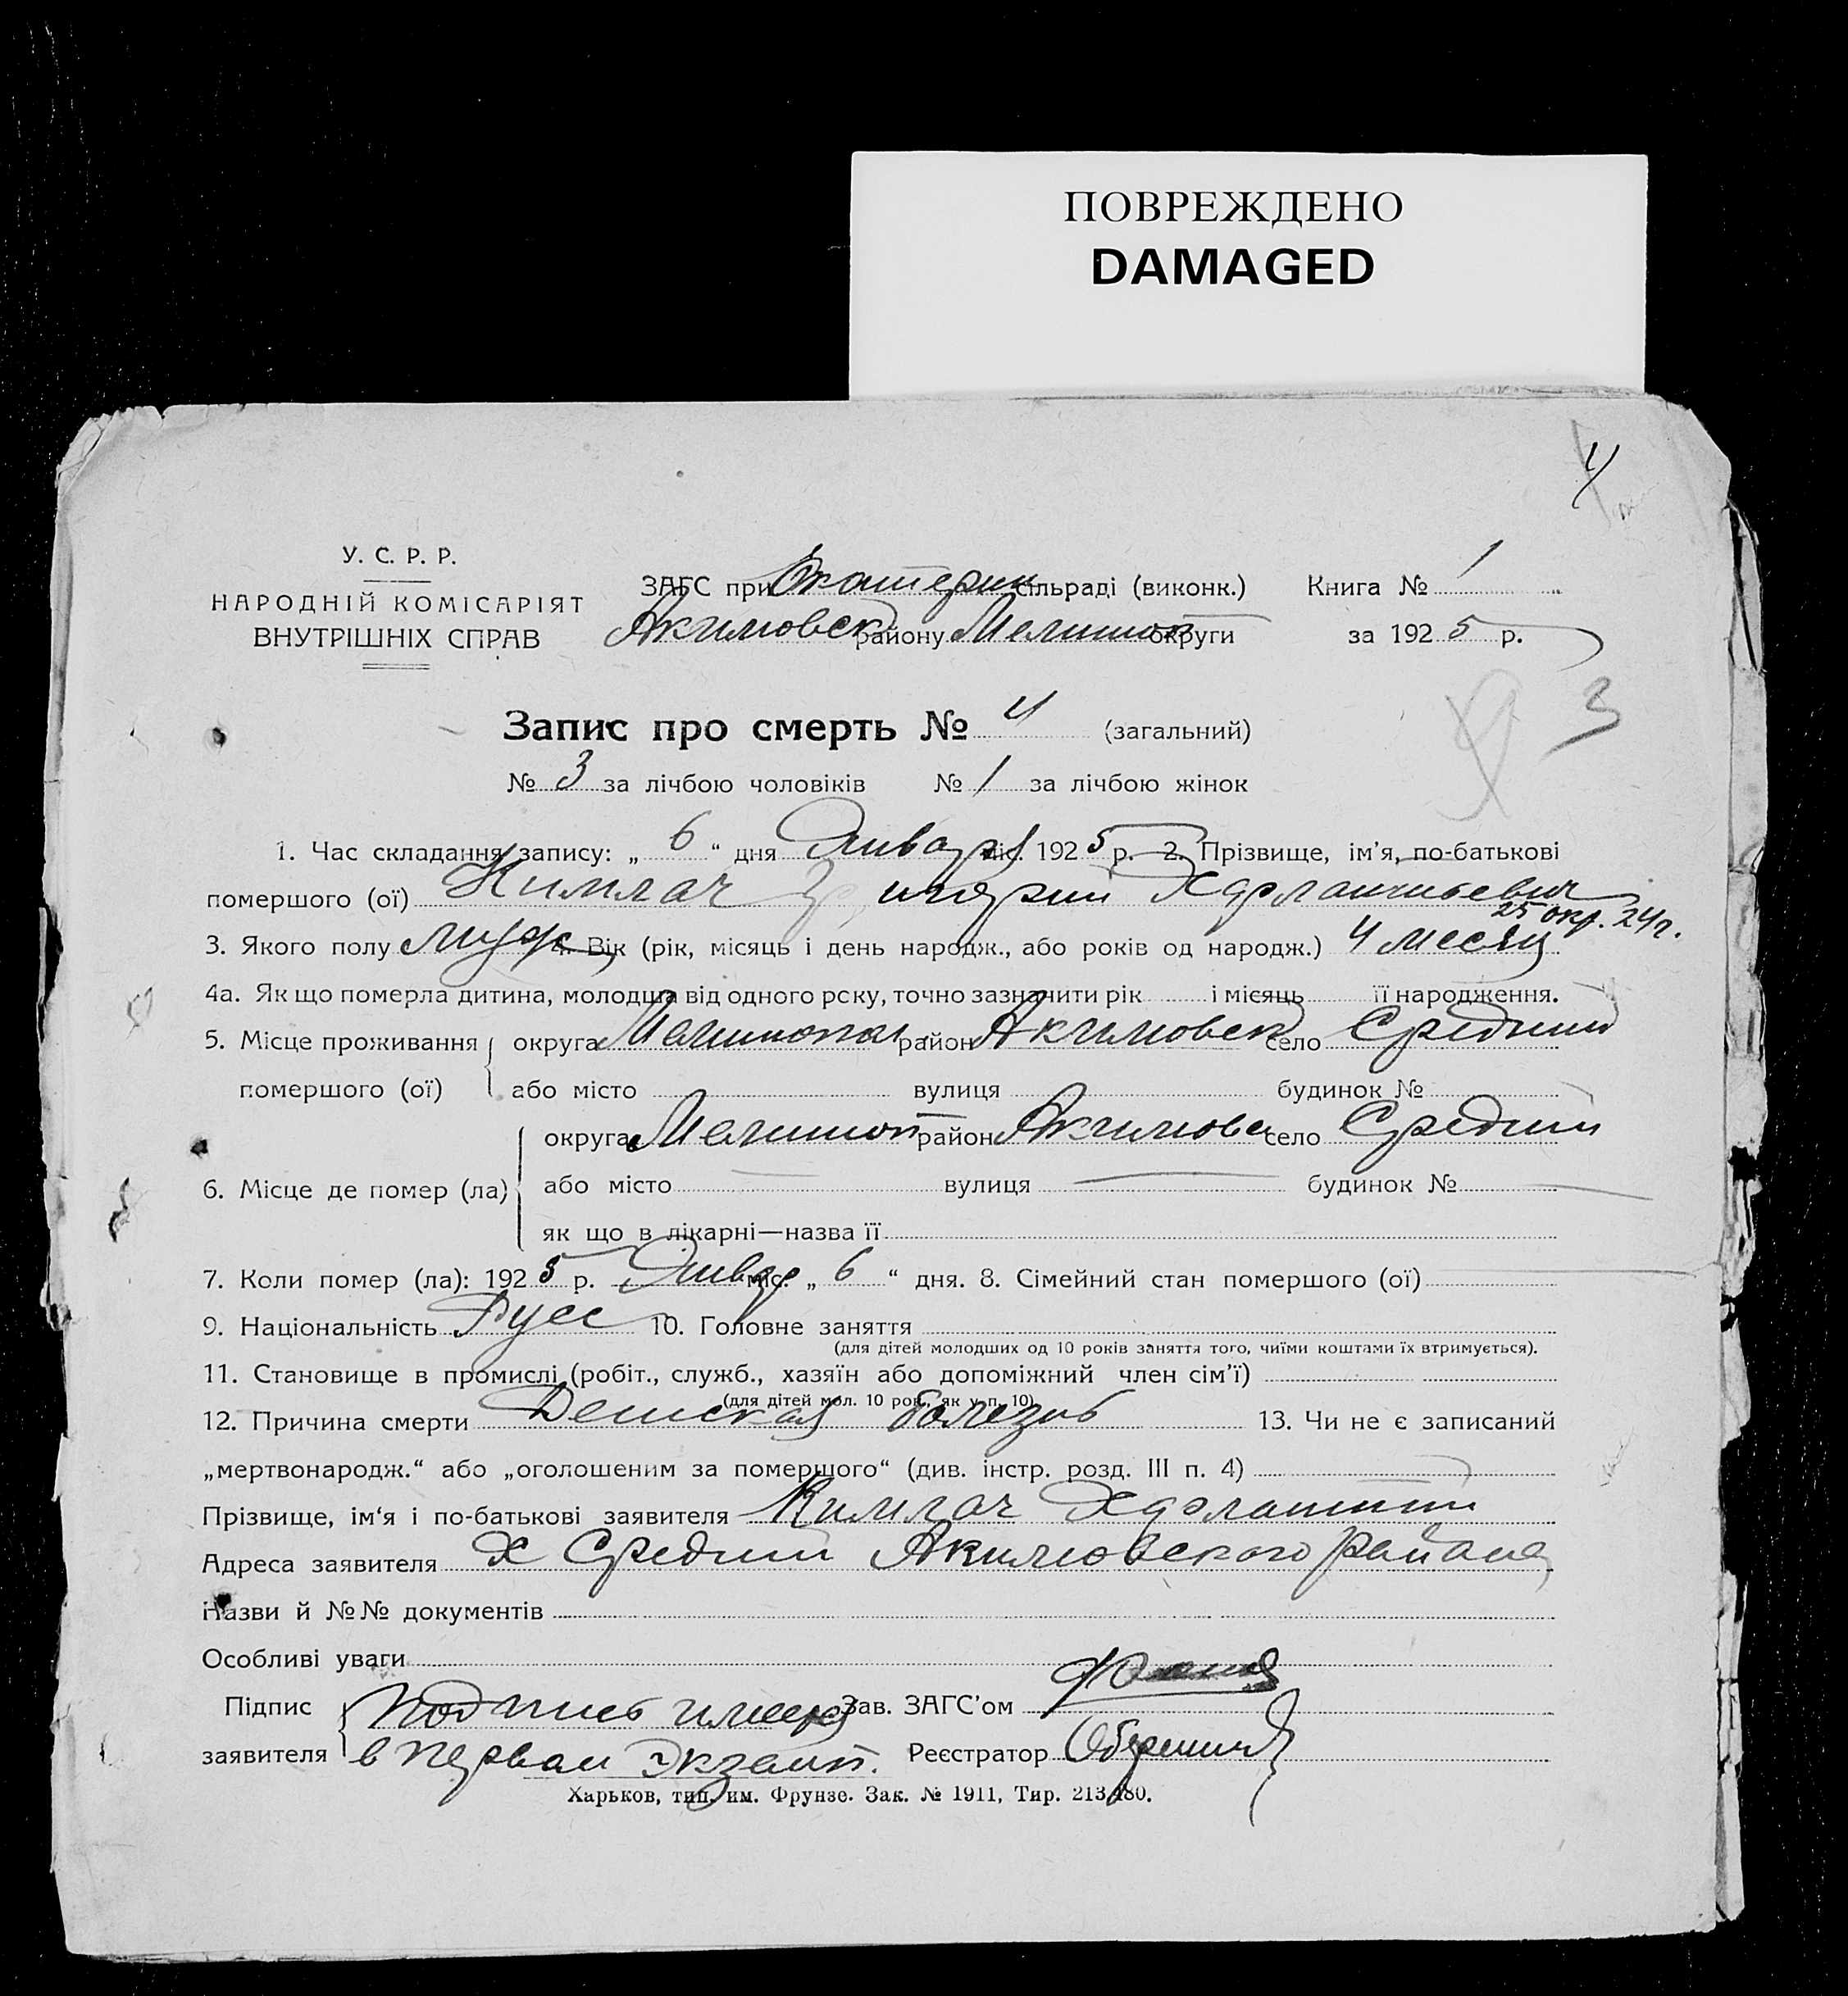 ПОВРЕЖДЕНО
DAMAGED
4
У. С. Р. Р.
НАРОДНІЙ КОМІСАРІЯТ
ВНУТРІШНІХ СПРАВ
ЗАГС при Екатерин сільраді (виконк.) Книга № 1
Акимовск району Мелитоп округи за 1925 р.
3
Запис про смерть № 4 (загальний)
№ 3 за лічбою чоловіків № 1 за лічбою жінок
1. Час складання запису: „ 6 “ дня Января міс. 1925 р. 2. Прізвище, ім’я, по-батькові
помершого (ої) Кимлач
25 окр. 24 г.
3. Якого полу муж 4. Вік (рік, місяць і день народж., або років од народж.) 4 месяц
4а. Як що померла дитина, молодша від одного рску, точно зазначити рік і місяць її народження.
5. Місце проживання округа Мелитопол район Акимовск село Средний
помершого (ої) або місто вулиця будинок №
округа Мелитоп район Акимовс село Средний
6. Місце де помер (ла) або місто вулиця будинок №
як що в лікарні—назва її
7. Коли помер (ла): 1925 р. Январ міс. „ 6 “ дня. 8. Сімейний стан помершого (ої)
9. Національність Русс 10. Головне заняття
(для дітей молодших од 10 років заняття того, чиїми коштами їх втримується).
11. Становище в промислі (робіт., служб., хазяїн або допоміжний член сім’ї)
(для дітей мол. 10 рок., як у п. 10)
12. Причина смерти Детская болезнь 13. Чи не є записаний
„мертвонародж.“ або „оголошеним за помершого“ (див. інстр. розд. III п. 4)
Прізвище, ім‘я і по-батькові заявителя Кимлач
Адреса заявителя Х Средний Акимовского района
Назви й №№ документів
Особливі уваги
Підпис Подпись имеется Зав. ЗАГС’ом
заявителя в первом экземп. Реєстратор
Харьков, тип. им. Фрунзе. Зак. № 1911, Тир. 213.480.